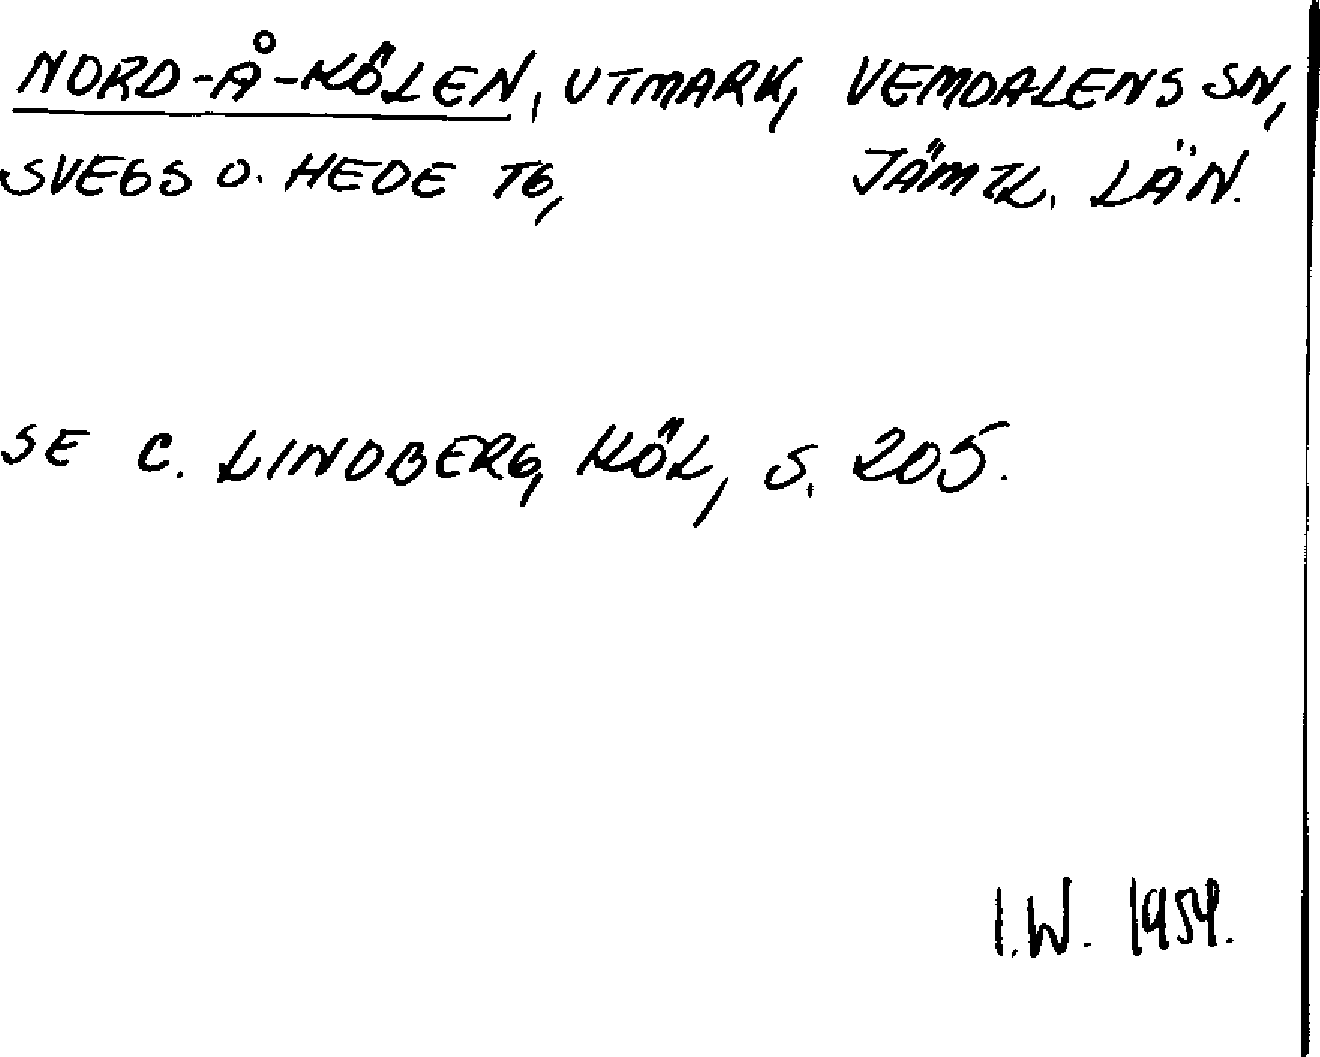 NORD-Å-KÖLEN, UTMARK, VEMDALENS SN,
SVEGS O. HEDE TG, JÄMTL. LÄN.
SE C. LINDBERG, KÖL, S. 205.
I.W. 1954.